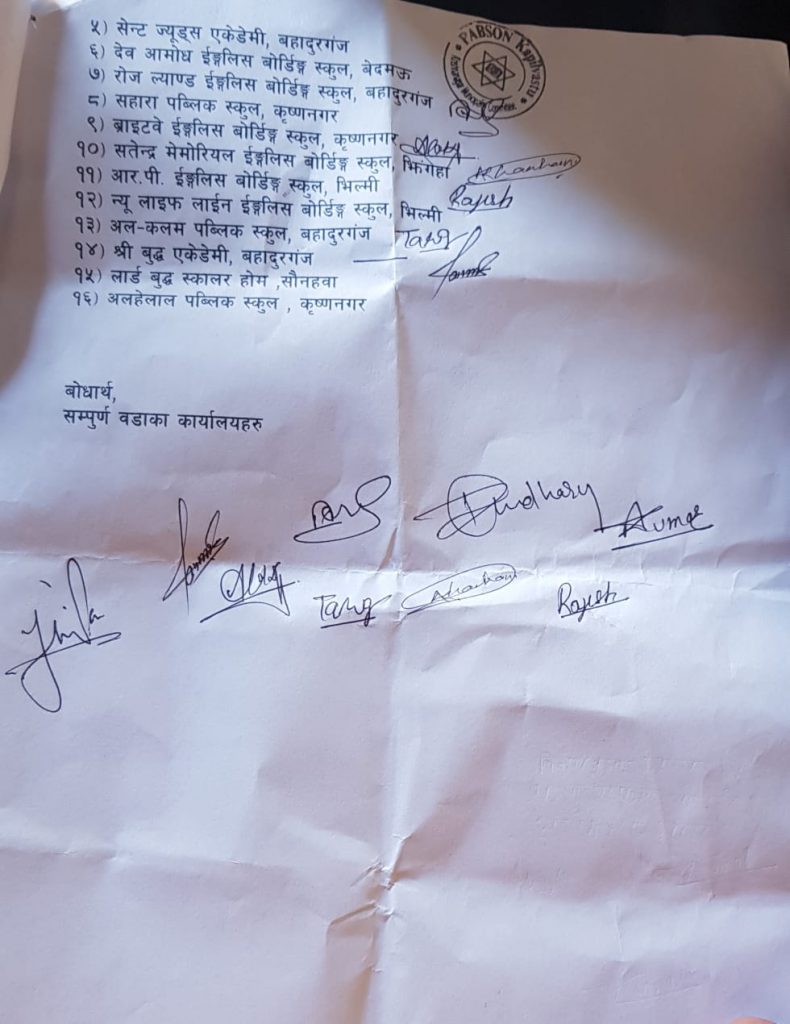 ५) सेन्ट ज्यूड्स एकेडेमी, बहादुरगंज
PABSON Kapilvastu
६) देव आमोध ईङ्गलिस बोर्डिङ्ग स्कुल, बेदमऊ
७) रोज ल्याण्ड ईङ्गलिस बोर्डिङ्ग स्कुल, बहादुरगंज
८) सहारा पब्लिक स्कुल, कृष्णनगर
९) ब्राइटवे ईङ्गलिस बोर्डिङ्ग स्कुल, कृष्णनगर
१०) सतेन्द्र मेमोरियल ईङ्गलिस बोर्डिङ्ग स्कुल, झिंगेहा
११) आर.पी. ईङ्गलिस बोर्डिङ्ग स्कुल, भिल्मी
१२) न्यू लाइफ लाईन ईङ्गलिस बोर्डिङ्ग स्कुल, भिल्मी Rajesh
१३) अल-कलम पब्लिक स्कुल, बहादुरगंज
१४) श्री बुद्ध एकेडेमी, बहादुरगंज
१५) लार्ड बुद्ध स्कालर होम ,सौनहवा
१६) अलहेलाल पब्लिक स्कुल , कृष्णनगर
बोधार्थ,
सम्पुर्ण वडाका कार्यालयहरु
Rajesh